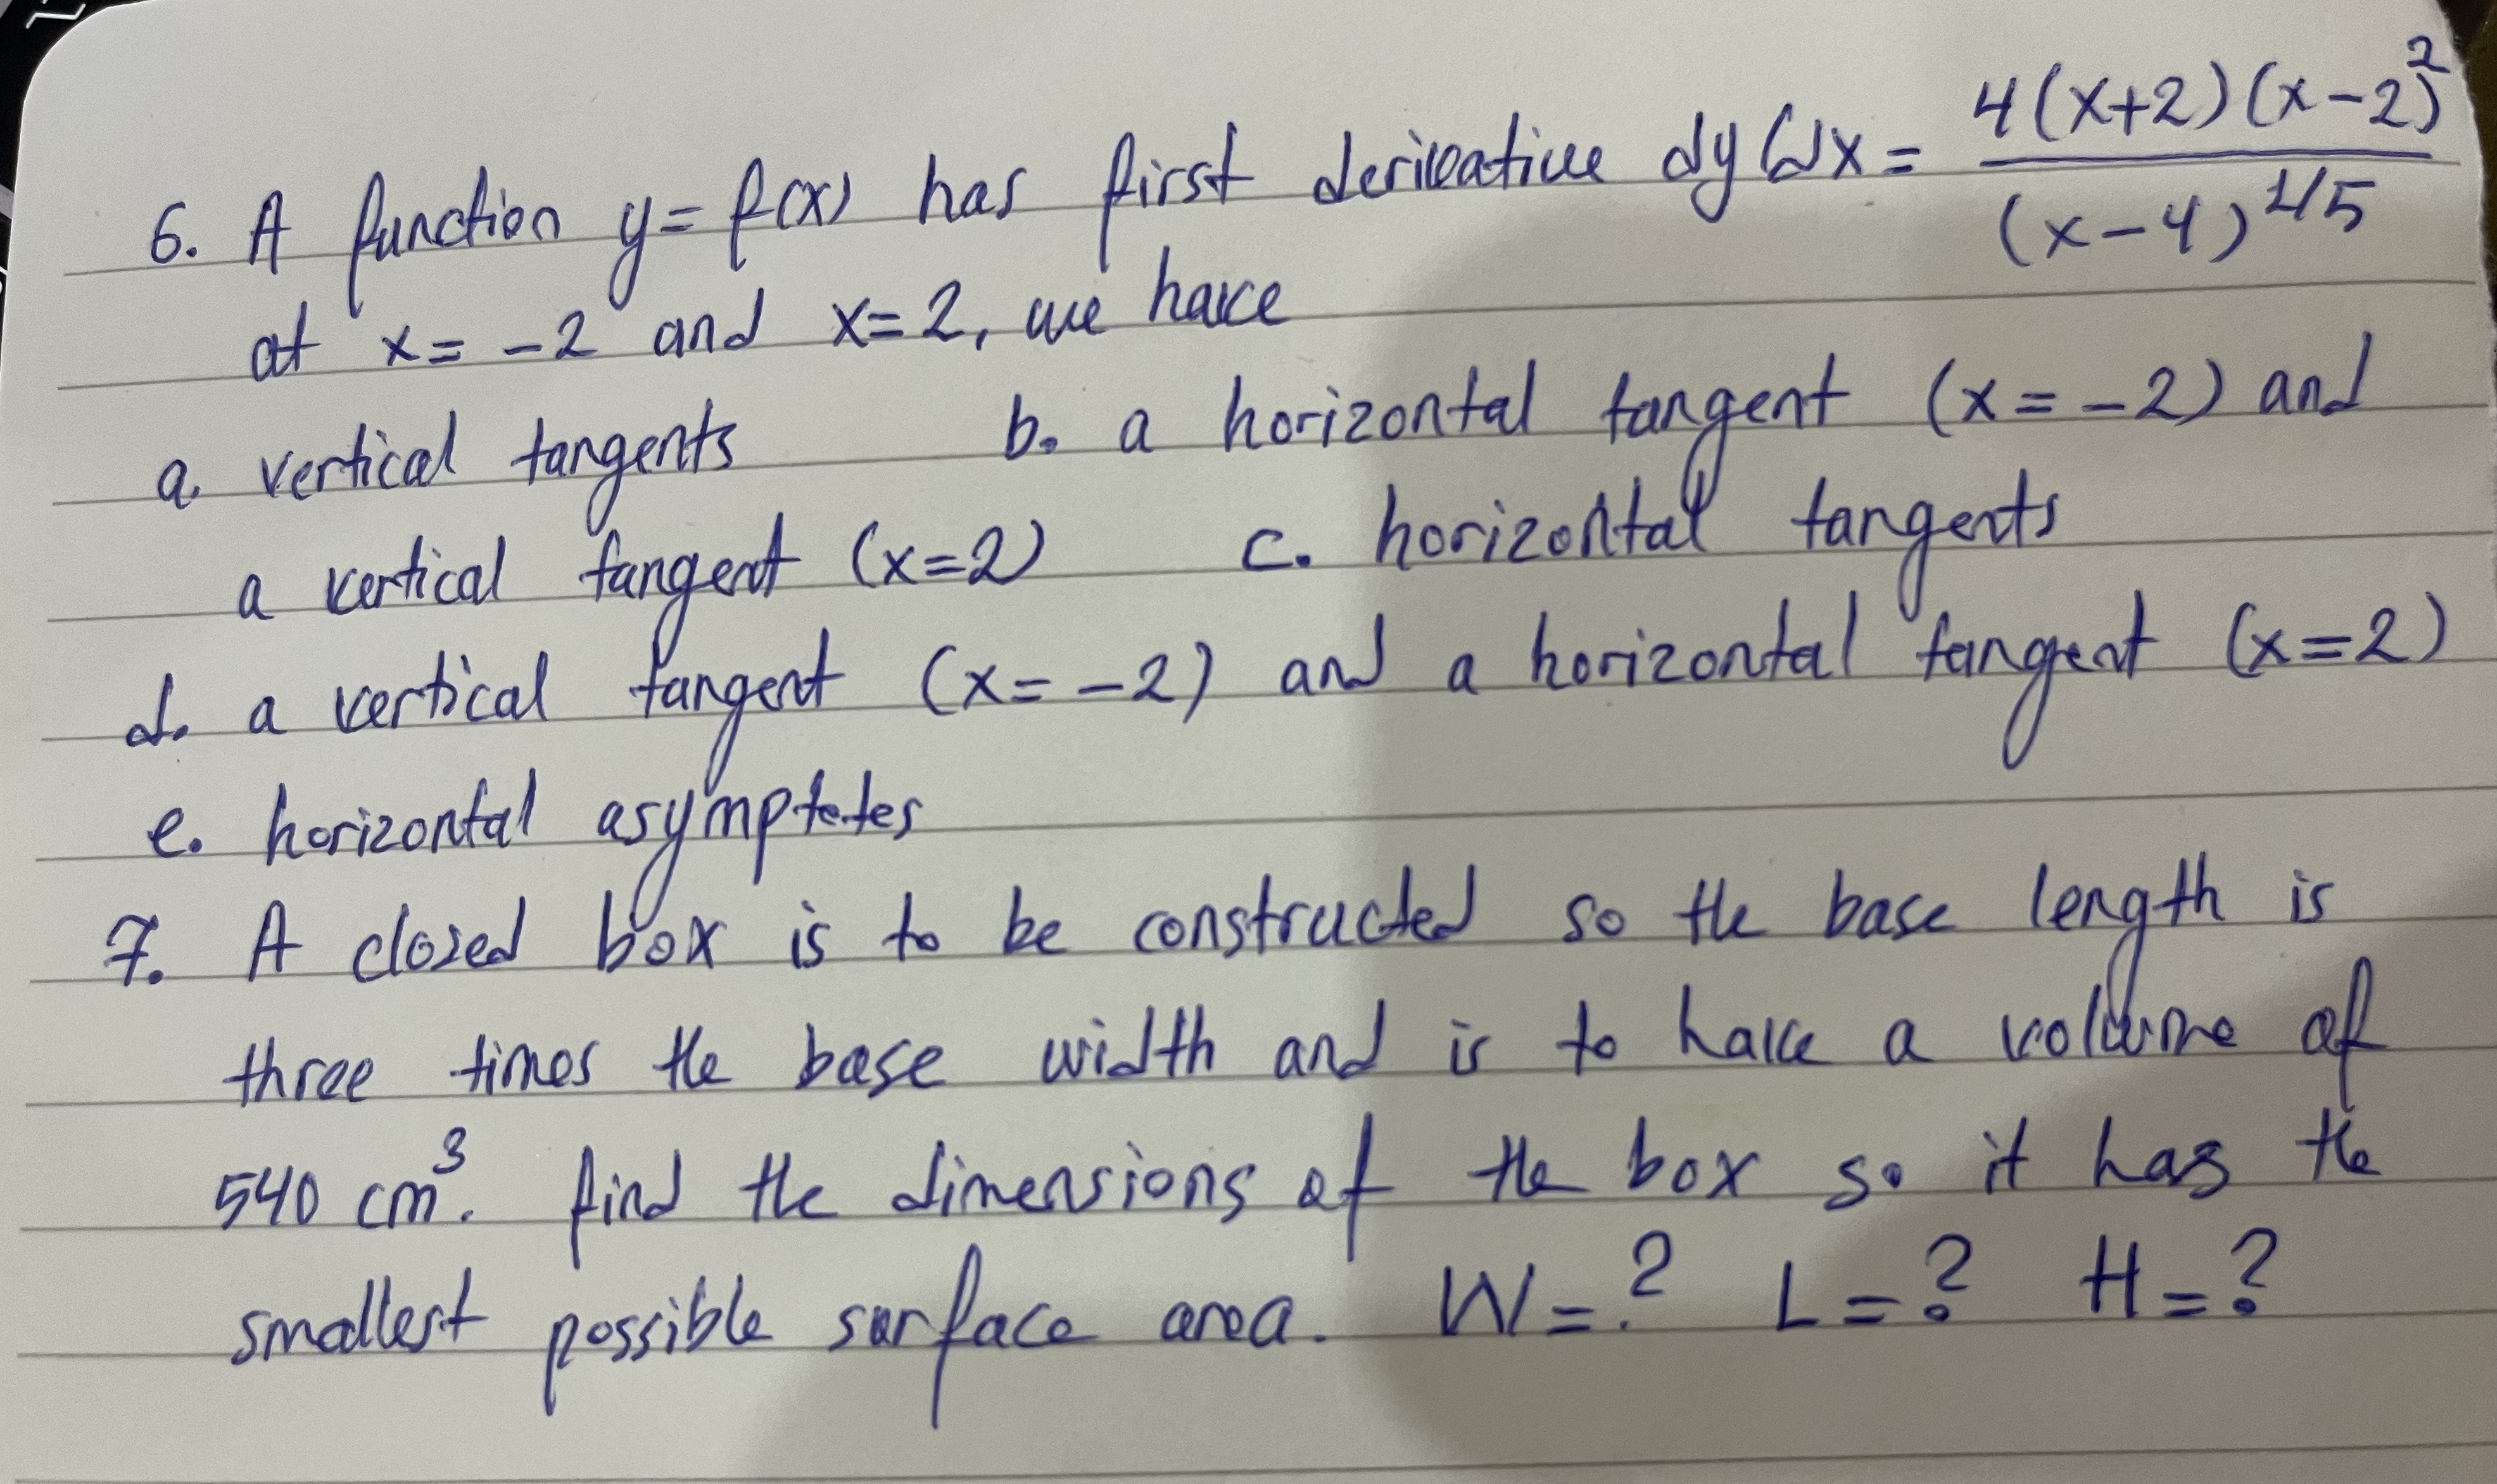 6. A function y = f(x) has first derivative dy/dx = 4(x+2)(x-2)²/(x-4)^1/5
at x = -2 and x = 2, we have
a. vertical tangents b. a horizontal tangent (x = -2) and
a vertical tangent (x=2) c. horizontal tangents
d. a vertical tangent (x = -2) and a horizontal tangent (x=2)
e. horizontal asymptotes
7. A closed box is to be constructed so the base length is
three times the base width and is to have a volume of
540 cm³. find the dimensions of the box so it has the
smallest possible surface area. W=? L=? H=?